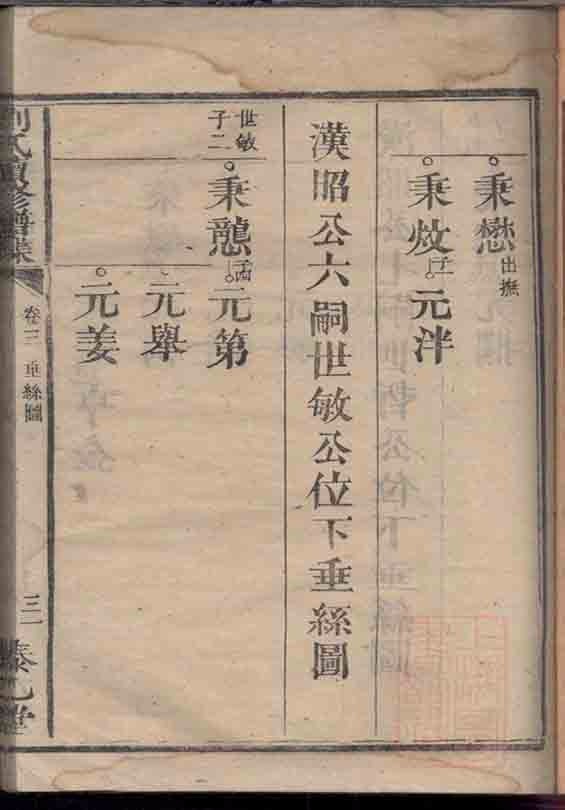 秉懋 出撫
秉炆 子一 元泮
漢昭公六嗣世敏公位下垂絲圖
世敏 子二
秉憇 子四 元第
元舉
元姜
氏重修譜牒
卷三 垂絲圖
三
乙堂